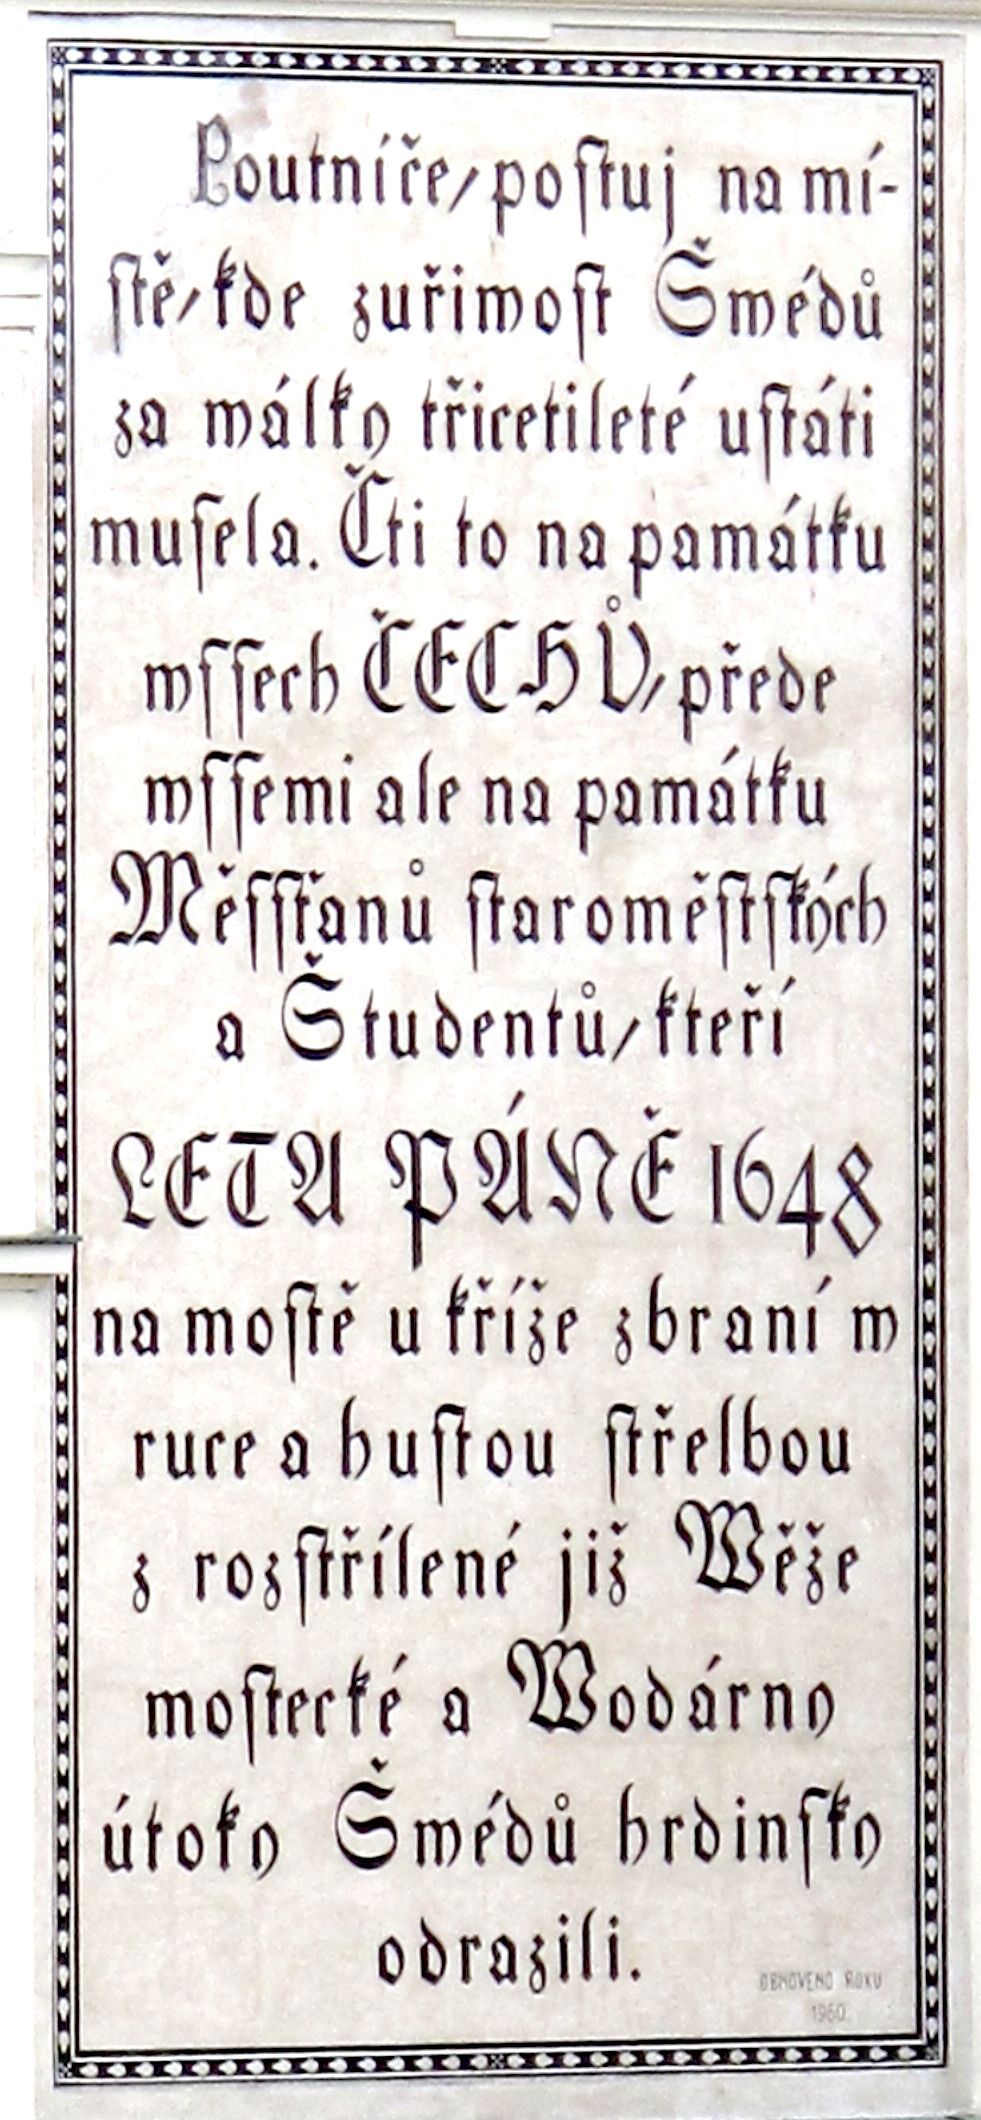 Poutníče, postuj na mí-
stě, kde zuřiwost Šwédů
za wálky třicetileté ustáti
musela. Čti to na památku
wssech ČECHŮ, přede
wssemi ale na památku
Měssťanů staroměstských
a Študentů, kteří
LETA PÁNĚ 1648
na mostě u kříže zbraní w
ruce a hustou střelbou
z rozstřílené již Wěže
mostecké a Wodárny
útoky Šwédů hrdinsky
odrazili.
OBNOVENO ROKU
1960